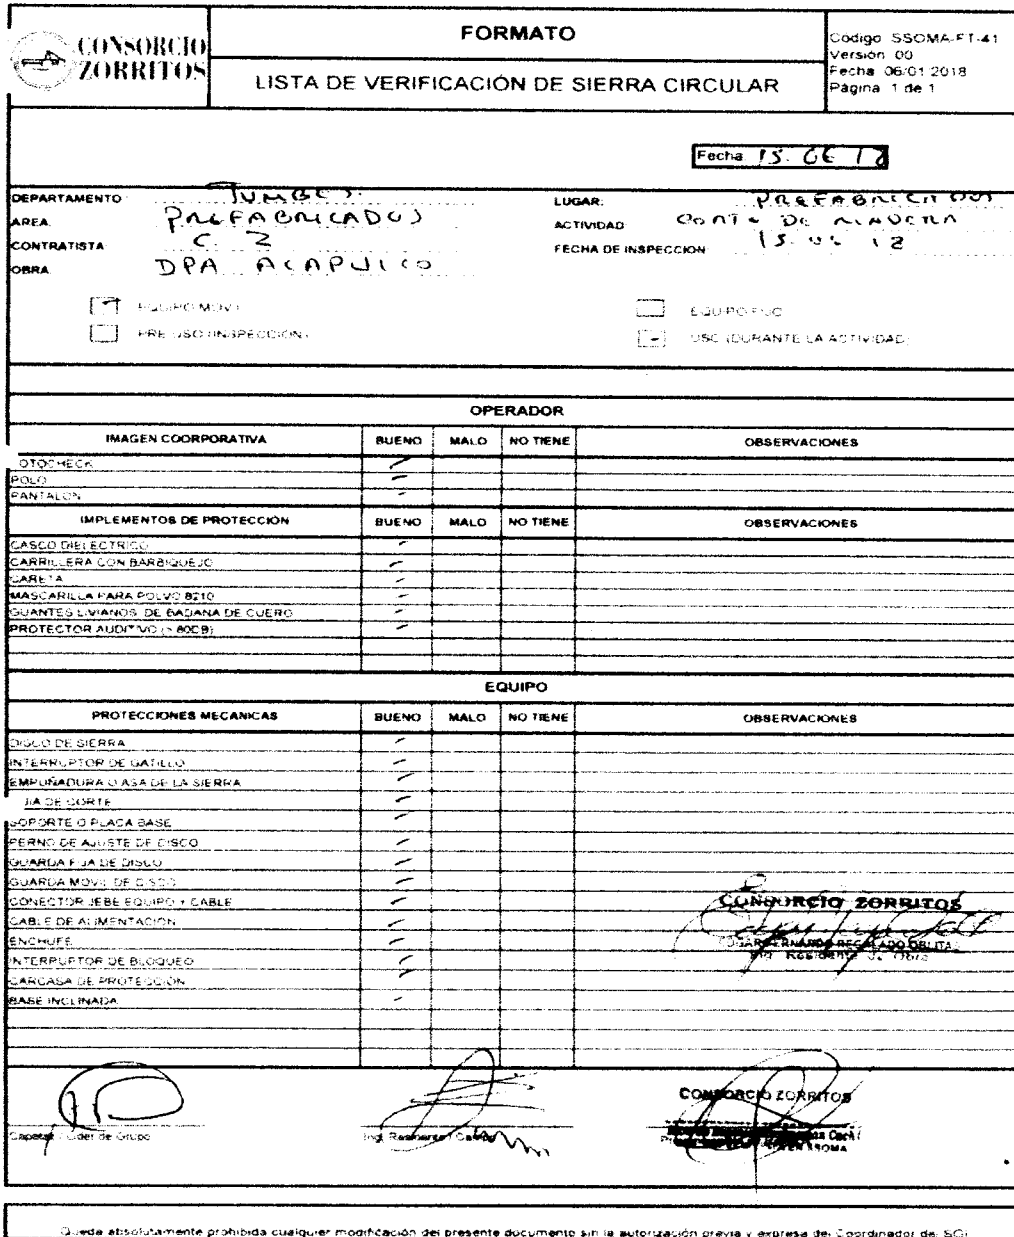 CONSORCIO
ZORRITOS
FORMATO
LISTA DE VERIFICACIÓN DE SIERRA CIRCULAR
Código SSOMA-FT-41
Versión 00
Fecha 06/01/2018
Página 1 de 1
Fecha 15.06 18
DEPARTAMENTO TUMBES
AREA PREFABRICADOS
CONTRATISTA C Z
OBRA DPA ACAPULCO
LUGAR: PREFABRICADOS
ACTIVIDAD CORTE DE MADERA
FECHA DE INSPECCION 15.06 18
EQUIPO MOVIL
PRE USO (INSPECCION)
EQUIPO FIJO
USO (DURANTE LA ACTIVIDAD)
OPERADOR
IMAGEN COORPORATIVA BUENO MALO NO TIENE OBSERVACIONES
OTOCHECK
POLO
PANTALON
IMPLEMENTOS DE PROTECCIÓN BUENO MALO NO TIENE OBSERVACIONES
CASCO DIELECTRICO
CARRILLERA CON BARBIQUEJO
CARETA
MASCARILLA PARA POLVO 8210
GUANTES LIVIANOS DE BADANA DE CUERO
PROTECTOR AUDITIVO (> 80CB)
EQUIPO
PROTECCIONES MECANICAS BUENO MALO NO TIENE OBSERVACIONES
DISCO DE SIERRA
INTERRUPTOR DE GATILLO
EMPUÑADURA O ASA DE LA SIERRA
IA DE CORTE
SOPORTE O PLACA BASE
PERNO DE AJUSTE DE DISCO
GUARDA FIJA DE DISCO
GUARDA MOVIL DE DISCO
CONECTOR JEBE EQUIPO Y CABLE
CABLE DE ALIMENTACIÓN
ENCHUFE
INTERRUPTOR DE BLOQUEO
CARCASA DE PROTECCIÓN
BASE INCLINADA
CONSORCIO ZORRITOS
REGALADO OBLITAS
Ing. Residente de Obra
Capataz / Lider de Grupo
Ing. Residente / Campo
CONSORCIO ZORRITOS
EN SSOMA
Queda absolutamente prohibida cualquier modificación del presente documento sin la autorización previa y expresa del Coordinador del SGI